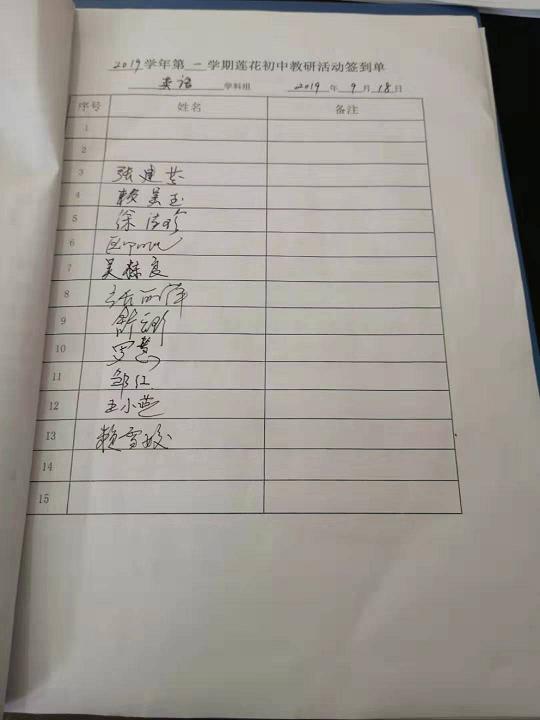 2019学年第一学期莲花初中教研活动签到单
英语 学科组 2019 年 9 月 18 日
序号 姓名 备注
1
2
3 张建芬
4 赖美玉
5 徐
6
7 吴
8
9 舒
10 罗慧
11 邹红
12 王小燕
13 赖雪姣
14
15